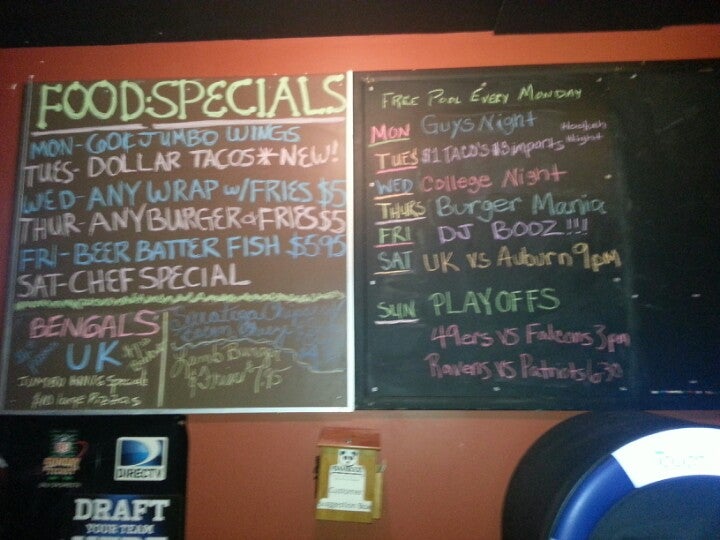 FOOD:SPECIALS
MON-60¢ JUMBO WINGS
TUES-DOLLAR TACOS*NEW!
WED-ANY WRAP W/FRIES $5
THUR-ANY BURGER & FRIES $5
FRI-BEER BATTER FISH $5.95
SAT-CHEF SPECIAL
BENGALS
UK
JUMBO WINGS Specials
$10 large Pizzas
Lamb Burger
FREE POOL EVERY MONDAY
MON Guys Night
TUES $1 TACO'S $3 imports
Night
WED College Night
THURS Burger Mania
FRI DJ BOOZ!!!
SAT UK vs Auburn 9pm
SUN PLAYOFFS
49ers vs Falcons 3pm
Ravens vs Patriots 6:30
DIRECTV
DRAFT
YOUR TEAM
Customer
Suggestion Box